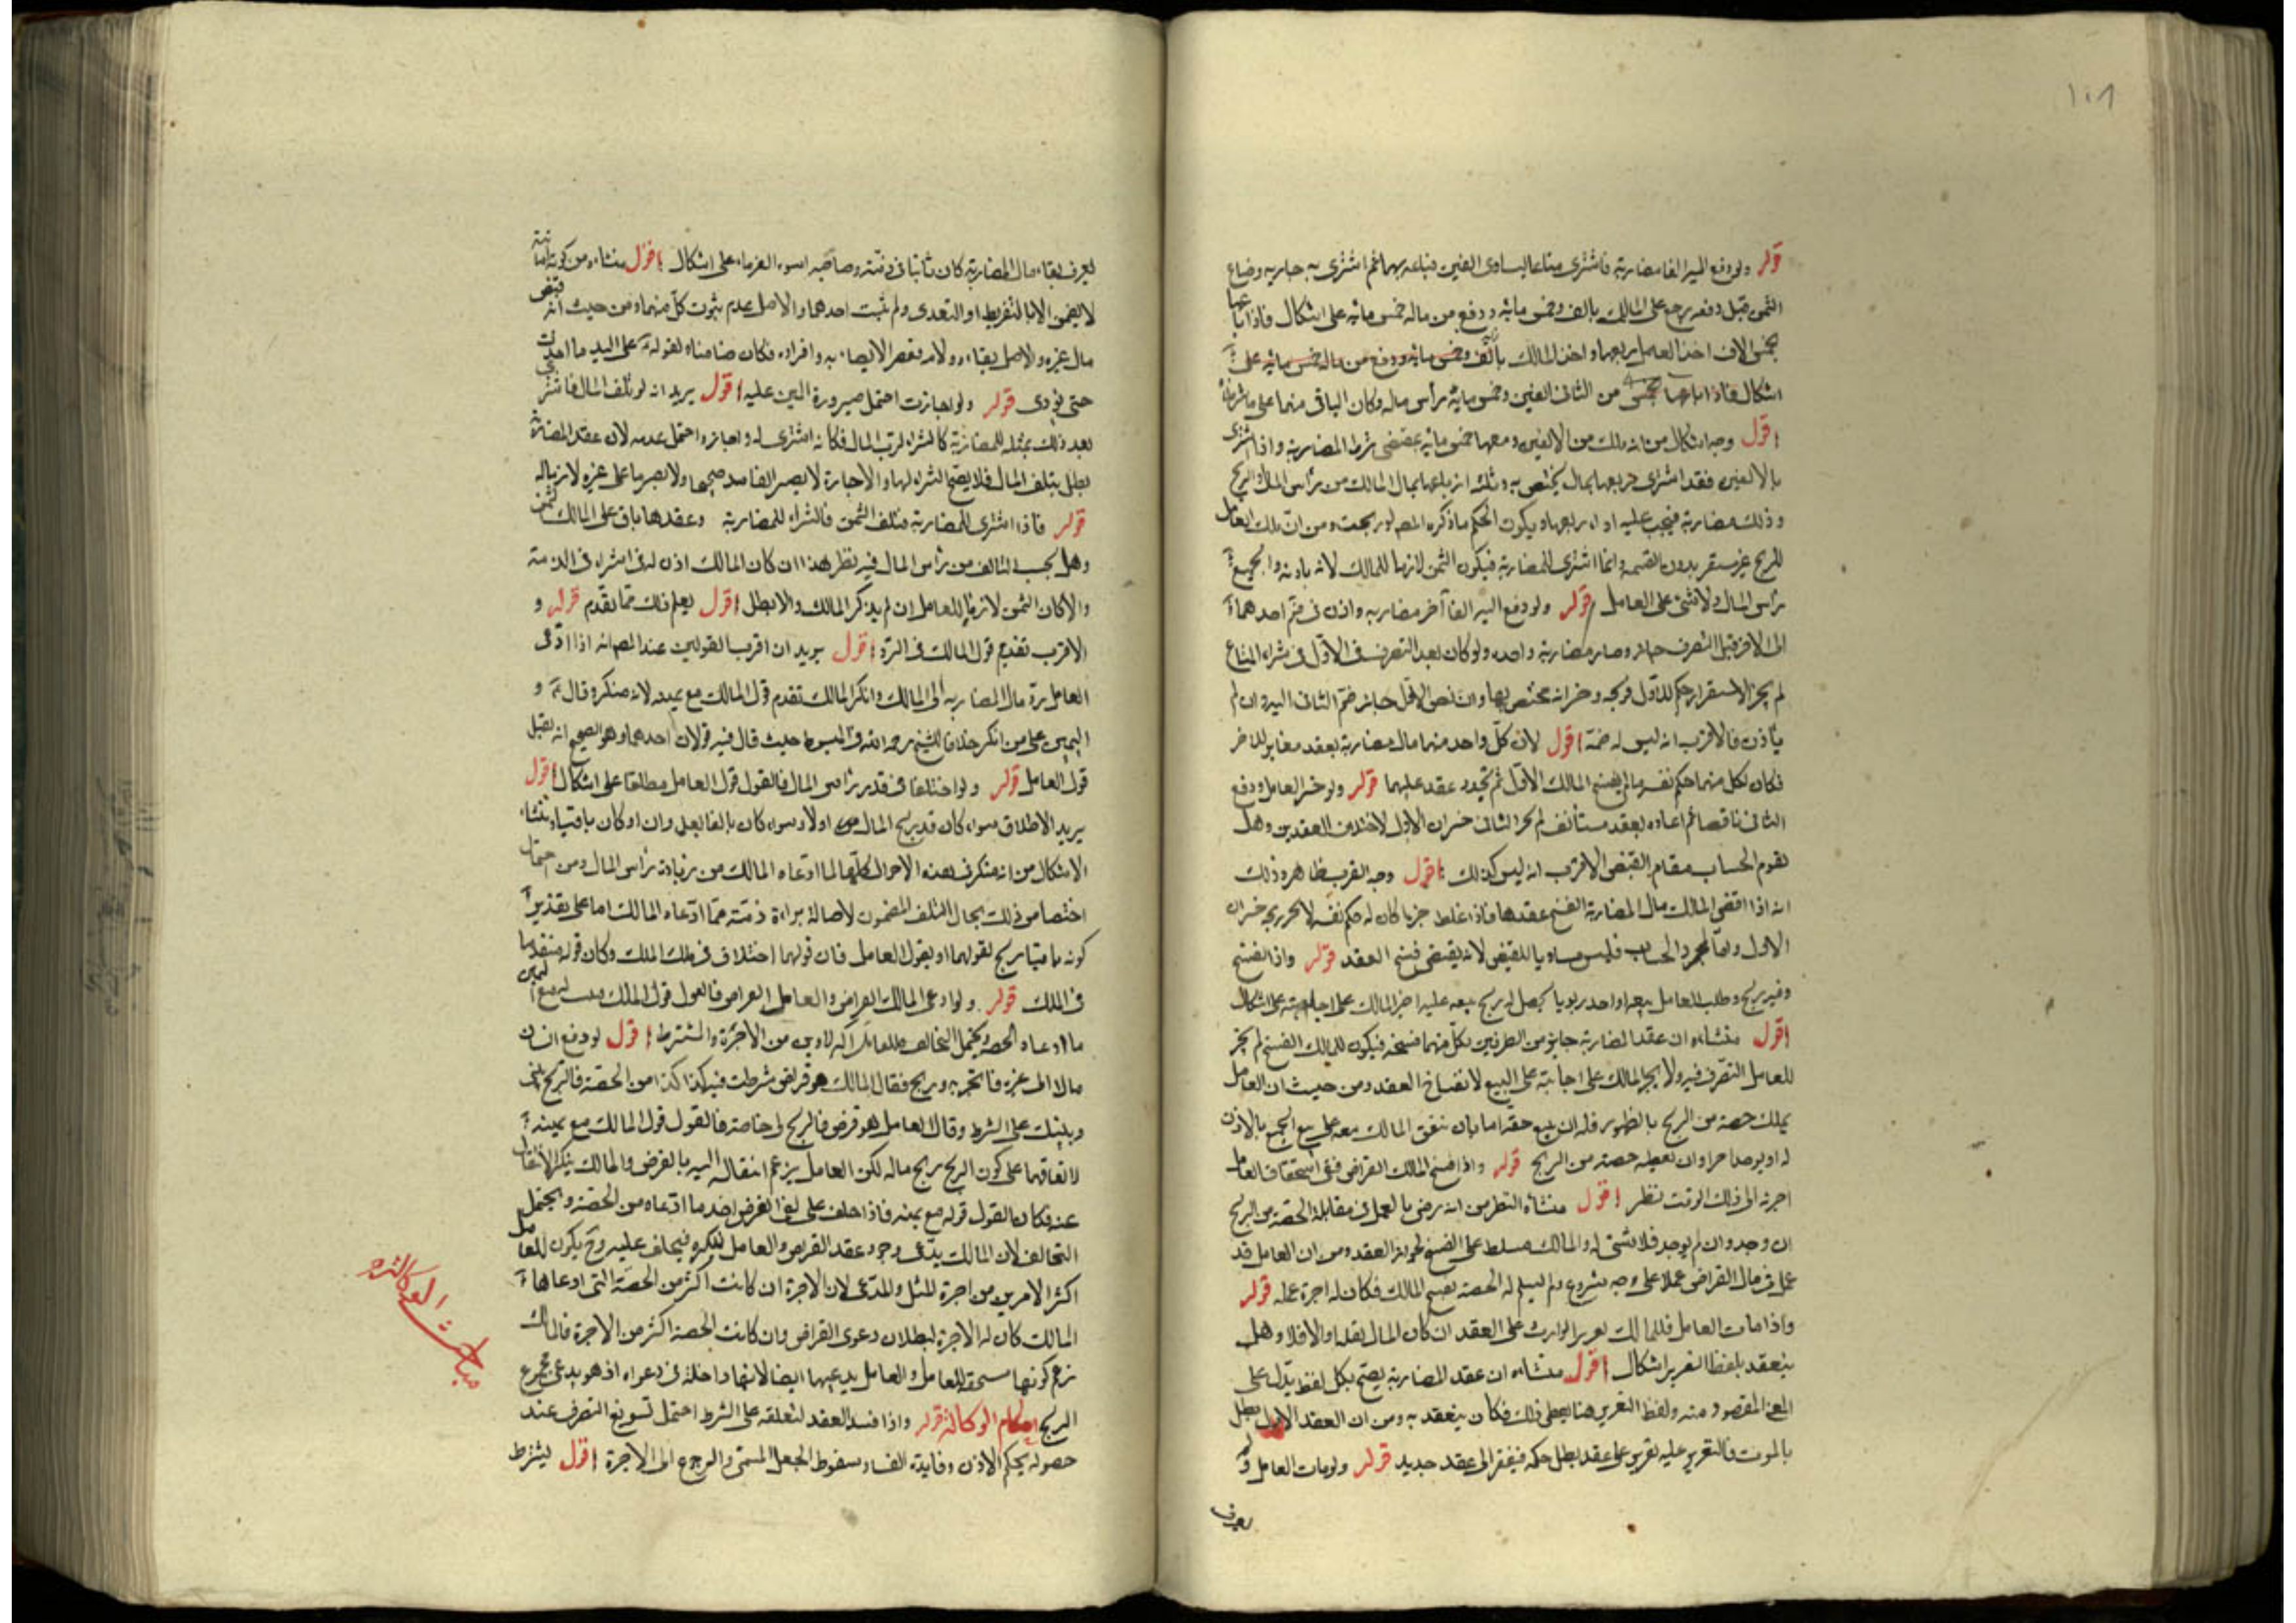 ١٠٨
قوله ولو دفع اليه الفا مضاربة فاشترى متاعا يساوى الفين فباعه بهما ثم اشترى به جارية وضاع
الثمن قبل دفعه رجع على المالك بالف وخمس مائة ودفع من ماله خمس مائة على اشكال فاذا باعها
بخمس الاف اخذ العامل ربعها واخذ المالك بالف وخمس مائة ودفع من ماله خمس مائة على
اشكال فاذا باعها بخمس من الثانى الفين وخمس مائة رأس ماله وكان الباقى منهما على ما شرطا
اقول وجه اشكال من انه ملك من الالفين ومعها خمس مائة بمقتضى شرط المضاربة واذا اشترى
بالالفين فقد اشترى ربعها بمال يختص به وثلثة ارباعها بمال المالك من رأس المال والربح
وذلك مضاربة فيجب عليه اداء ربعها ويكون الحكم ما ذكره المص لو ربحت ومن ان ملك العامل
للربح غير مستقر بدون القسمة وانما اشترى للمضاربة فيكون الثمن لازما للمالك لانه باذنه والجميع
رأس المال ولا شئ على العامل قوله ولو دفع اليه الفا آخر مضاربة واذن فى ضم احدهما
الى الاخر قبل التصرف جاز وصار مضاربة واحدة ولو كان بعد التصرف فى الاول فى شراء المتاع
لم يجز لاستقرار حكم الاول فربحه وخسرانه مختص بها وان نض الاول جاز ضم الثانى اليه وان لم
يأذن فالاقرب انه ليس له ضمه اقول لان كل واحد منهما مال مضاربة بعقد مغاير للاخر
فكان لكل منهما حكم نفسه ما لم يفسخ المالك الاول ثم يجدد عقد عليهما قوله ولو خسر العامل ودفع
الثانى ناقصا ثم اعاده بعقد مستأنف لم يجز الثانى خسران الاول لاختلاف العقدين وهل
يقوم الحساب مقام القبض الاقرب انه ليس كذلك اقول وجه القرب ظاهر وذلك
انه اذا اقضى المالك مال المضاربة انفسخ عقدها فاذا غلط جزما كان له حكم نفسه لا يجبر ربحه خسران
الاول واما مجرد الحساب فليس مساويا للقبض لانه يقتضى فسخ العقد قوله واذا انفسخ
وفيه ربح وطلب العامل بيعه او احد ربويا يحصل له ربح ببيعه عليه اجبر المالك على اجابته على اشكال
اقول منشاءه ان عقد المضاربة جايز من الطرفين لكل منهما فسخه فيكون للمالك الفسخ لم يجز
للعامل التصرف فيه ولا يجبر المالك على اجابته على البيع لانفساخ العقد ومن حيث ان العامل
يملك حصة من الربح بالظهور فله ان يبيع حقه اما بان يتفق المالك معه على بيع الجميع بالاذن
له او يوصله حر وان يعطيه حصته من الربح قوله واذا فسخ المالك القراض ففى استحقاق العامل
اجرة الى ذلك الوقت نظر اقول منشاء النظر من انه رضى بالعمل فى مقابلة الحصة من الربح
ان وجد وان لم يوجد فلا شئ له والمالك مسلط على الفسخ لجواز العقد ومن ان العامل قد
عمل فى مال القراض عملا على وجه مشروع ولم يسلم له الحصة بفسخ المالك فكان له اجرة عمله قوله
واذا مات العامل فللمالك تعرير الوارث على العقد ان كان المال نقدا والا فلا وهل
ينعقد بلفظ التقرير اشكال اقول منشاءه ان عقد المضاربة يصح بكل لفظ يدل على
المعنى المقصود منه ولفظ التقرير هنا يعطى ذلك فكان ينعقد به ومن ان العقد الاول بطل
بالموت فالتقرير عليه تقرير على عقد بطل حكمه فيفتقر الى عقد جديد قوله ولو مات العامل ولم
يعرف
يعرف بقاء مال المضاربة كان ثابتا فى ذمته وصاحبه اسوة الغرماء على اشكال اقول منشاءه من كونه امانة
لا يضمن الا بالتفريط او التعدى ولم يثبت احدهما والاصل عدم ثبوت كل منهما ومن حيث انه قبض
مال غيره والاصل بقاءه ولانه نقص الايصاء به وافراده فكان ضامنا لقوله ع على اليد ما اخذت
حتى تؤدى قوله ولو اجازت احتمل صيرورة الدين عليه اقول يريد انه لو تلف المال فاشترى
بعد ذلك بمثله للمضاربة كالشراء لرب المال فكانه اشترى له واجازه واحتمل عدمه لان عقد المضاربة
بطل بتلف المال فلا يصح الشراء لها والاجازة لا يصير الفاسد صحيحا ولا يصير ما على غيره لازما له
قوله فاذا اشترى للمضاربة فتلف الثمن فالشراء للمضاربة وعقدها باق على المالك الثمن
وهل يحسب التالف من رأس المال فيه نظر هذا ان كان المالك اذن له فى الشراء فى الذمة
والا كان الثمن لازما للعامل ان لم يذكر المالك والا بطل اقول يعلم ذلك مما تقدم قوله و
الاقرب تقديم قول المالك فى الرد اقول يريد ان اقرب القولين عند المص انه اذا ادعى
العامل رد مال المضاربة الى المالك وانكر المالك تقدم قول المالك مع يمينه لانه منكر وقال ع و
اليمين على من انكر خلافا للشيخ رحمه الله فى المبسوط حيث قال فيه قولان احدهما وهو الصحيح انه يقبل
قول العامل قوله ولو اختلفا فى قدر رأس المال فالقول قول العامل مطلقا على اشكال اقول
يريد الاطلاق سواء كان قد ربح المال او لا وسواء كان بالفا بعل وان او كان باقيا ومنشاء
الاشكال من انه منكر فى هذه الاحوال كلها لما ادعاه المالك من زيادة رأس المال ومن احتمال
اختصاص ذلك بحال التلف المضمون لاصالة براءة ذمته مما ادعاه المالك اما على تقدير
كونه باقيا ربح لقولهما او بقول العامل فان قولهما اختلاف فى ملك الملك وكان قوله متقدما
فى الملك قوله ولو ادعى المالك القراض والعامل القراض فالقول قول المالك اليمين
ما ادعاه الحصة ويحتمل التحالف فللعامل اكثر الامرين من الاجرة والمشترط اقول لو دفع انسان
مالا الى غيره فاتجر به وربح فقال المالك هو قراض شرطت فيه كذا كذا من الحصة فالربح بينى
وبينك على الشرط وقال العامل هو قرض فالربح لى خاصة فالقول قول المالك مع يمينه
لاتفاقهما على كون الربح ربح ماله لكن العامل يزعم انتقاله اليه بالقرض والمالك ينكر الانتقال
عنه فكان القول قوله مع يمينه فاذا حلف على نفى القرض اخذ ما ادعاه من الحصة ويحتمل
التحالف لان المالك يدعى وجود عقد القراض والعامل ينكره فيحلف عليه وح يكون للعامل
اكثر الامرين من اجرة المثل والمدعى لان الاجرة ان كانت اكثر من الحصة التى ادعاها
المالك كان له الاجرة لبطلان دعوى القراض وان كانت الحصة اكثر من الاجرة فالمالك
زعم كونها مستحقة للعامل والعامل يدعيها ايضا لانها داخلة فى دعواه اذ هو يدعى مجموع
الربح احكام الوكالة قوله واذا فسد العقد لتعلقه على الشرط احتمل تسويغ التصرف عند
حصوله بحكم الاذن وفايدة الفساد سقوط الجعل المسمى والرجوع الى الاجرة اقول يشترط
مباحث الوكالة